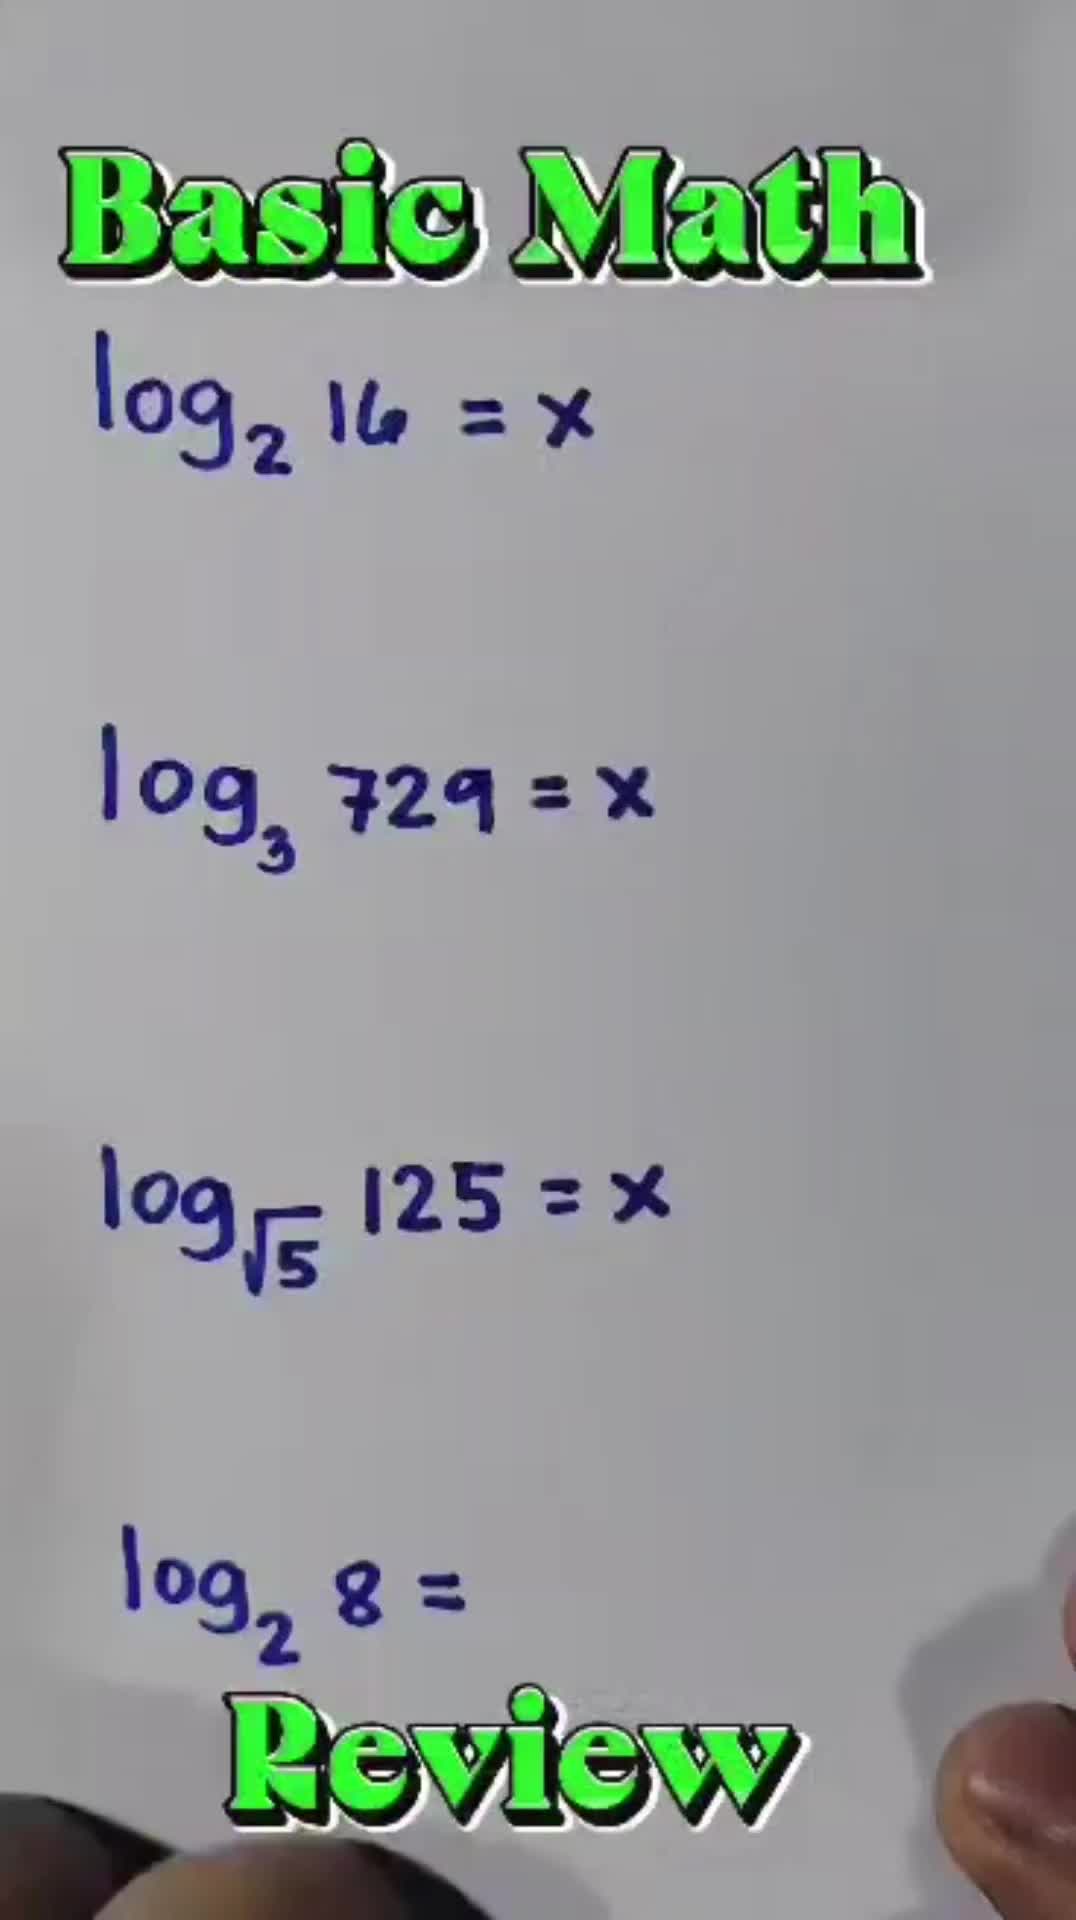 Basic Math
log₂ 16 = x
log₃ 729 = x
log√5 125 = x
log₂ 8 =
Review